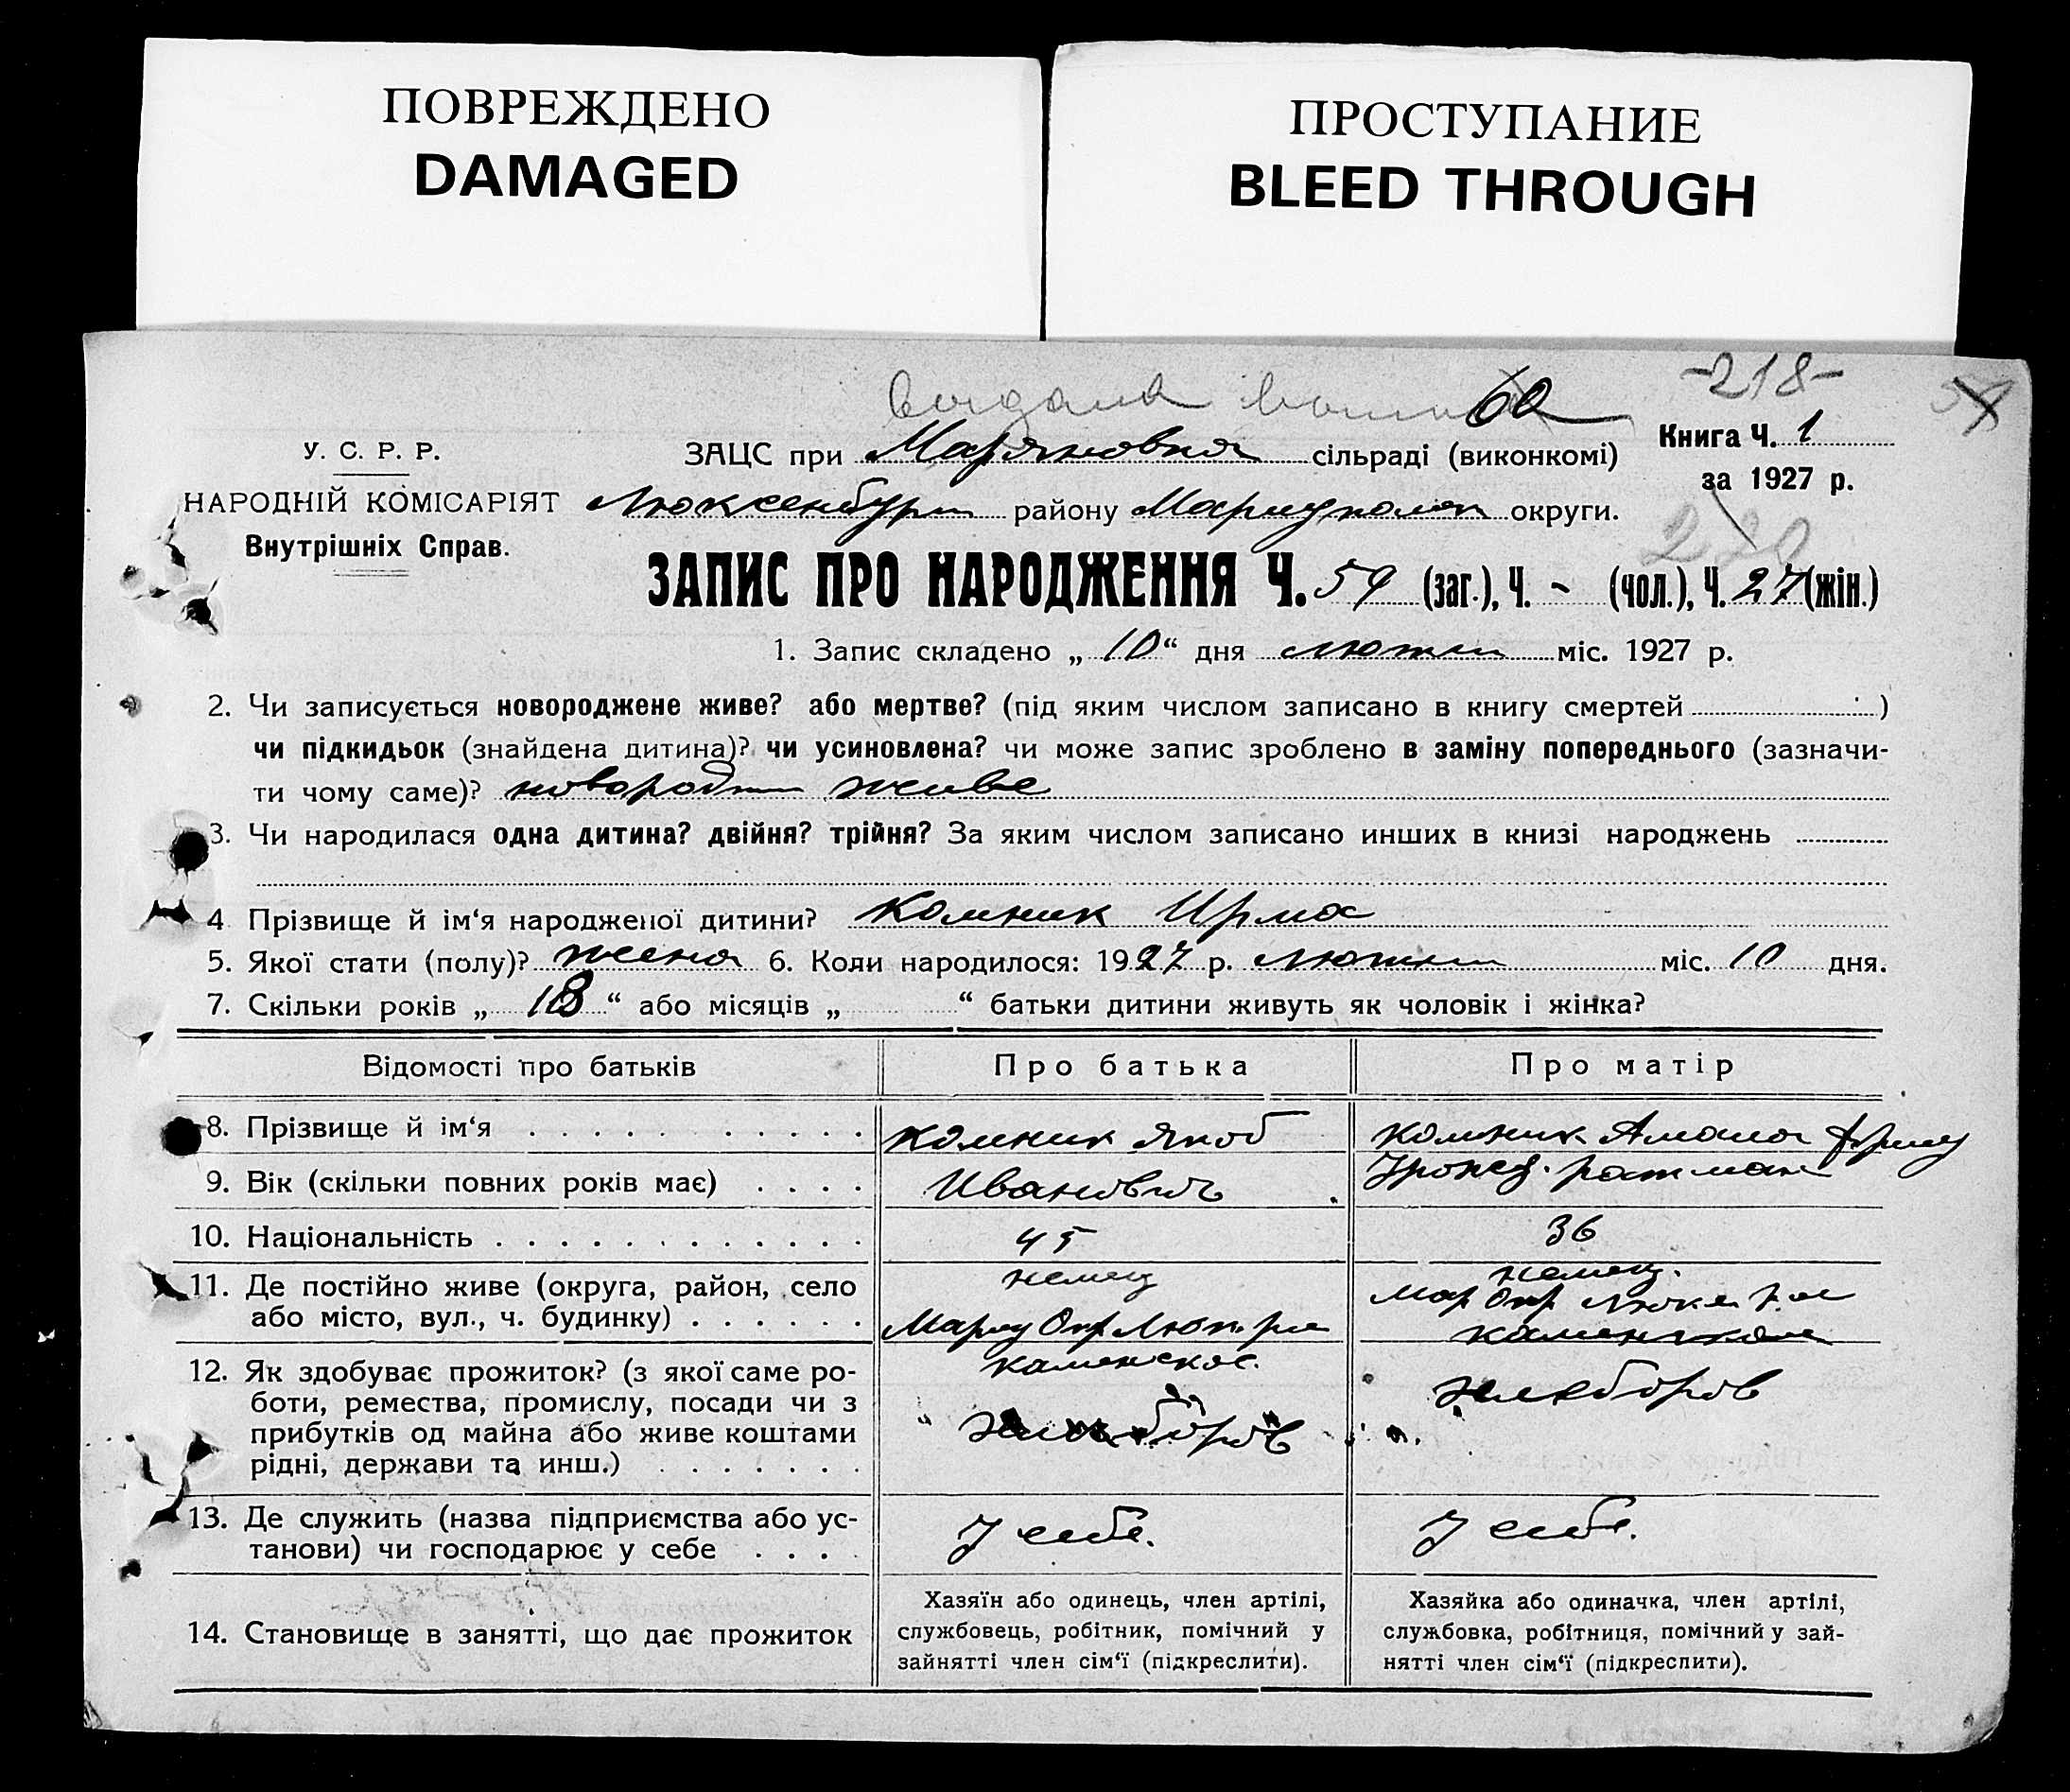 ПОВРЕЖДЕНО
DAMAGED
ПРОСТУПАНИЕ
BLEED THROUGH
60
-218-
У. С. Р. Р.
ЗАЦС при Маряновка сільраді (виконкомі)
Книга Ч. 1
за 1927 р.
НАРОДНІЙ КОМІСАРІЯТ
Люксенбург району Мариуполя округи.
Внутрішніх Справ.
ЗАПИС ПРО НАРОДЖЕННЯ Ч. 59 (заг.), Ч. - (чол.), Ч. 27 (жін.)
1. Запис складено „ 10 “ дня лютня міс. 1927 р.
2. Чи записується новороджене живе? або мертве? (під яким числом записано в книгу смертей )
чи підкидьок (знайдена дитина)? чи усиновлена? чи може запис зроблено в заміну попереднього (зазначи-
ти чому саме)? живе
3. Чи народилася одна дитина? двійня? трійня? За яким числом записано инших в книзі народжень
4 Прізвище й ім‘я народженої дитини? Комник Ирма
5. Якої стати (полу)? жена 6. Коли народилося: 1927 р. лютня міс. 10 дня.
7. Скільки років „ 18 “ або місяців „ “ батьки дитини живуть як чоловік і жінка?
Відомості про батьків
Про батька
Про матір
8. Прізвище й ім‘я
Комник Якоб
Комник Амалия
9. Вік (скільки повних років має)
Иванович
Урожд. Ратман
10. Національність
45
36
немец
немец.
11. Де постійно живе (округа, район, село
або місто, вул., ч. будинку)
Мариу Окр Люк. р-на
Мар Окр Люкс р-на
Каменское.
Каменском
12. Як здобуває прожиток? (з якої саме ро-
боти, ремества, промислу, посади чи з
прибутків од майна або живе коштами
рідні, держави та инш.)
хлебороб
хлебороб
13. Де служить (назва підприємства або ус-
танови) чи господарює у себе
У себе.
У себе.
14. Становище в занятті, що дає прожиток
Хазяїн або одинець, член артілі,
службовець, робітник, помічний у
зайнятті член сім‘ї (підкреслити).
Хазяйка або одиначка, член артілі,
службовка, робітниця, помічний у зай-
нятті член сім‘ї (підкреслити).